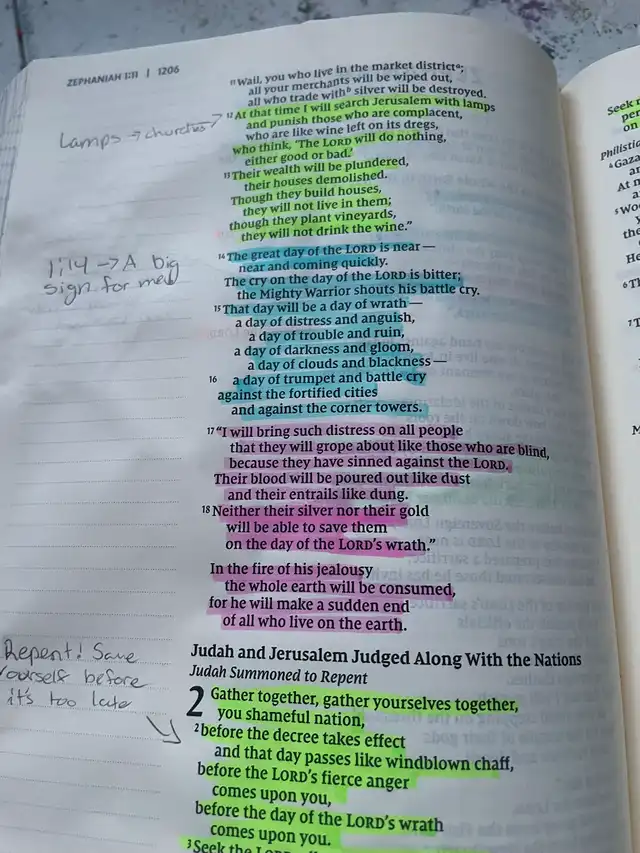 ZEPHANIAH 1:11 | 1206
11 Wail, you who live in the market districtᵃ;
all your merchants will be wiped out,
all who trade withᵇ silver will be destroyed.
12 At that time I will search Jerusalem with lamps
and punish those who are complacent,
who are like wine left on its dregs,
who think, ‘The LORD will do nothing,
either good or bad.’
13 Their wealth will be plundered,
their houses demolished.
Though they build houses,
they will not live in them;
though they plant vineyards,
they will not drink the wine.”
14 The great day of the LORD is near—
near and coming quickly.
The cry on the day of the LORD is bitter;
the Mighty Warrior shouts his battle cry.
15 That day will be a day of wrath—
a day of distress and anguish,
a day of trouble and ruin,
a day of darkness and gloom,
a day of clouds and blackness—
16 a day of trumpet and battle cry
against the fortified cities
and against the corner towers.
17 “I will bring such distress on all people
that they will grope about like those who are blind,
because they have sinned against the LORD.
Their blood will be poured out like dust
and their entrails like dung.
18 Neither their silver nor their gold
will be able to save them
on the day of the LORD’s wrath.”
In the fire of his jealousy
the whole earth will be consumed,
for he will make a sudden end
of all who live on the earth.
Judah and Jerusalem Judged Along With the Nations
Judah Summoned to Repent
2 Gather together, gather yourselves together,
you shameful nation,
2 before the decree takes effect
and that day passes like windblown chaff,
before the LORD’s fierce anger
comes upon you,
before the day of the LORD’s wrath
comes upon you.
3 Seek the LORD
Lamps → churches →
1:14 → A big
sign for me!
Repent! Save
yourself before
it's too late
Seek
per
on
Philistia
4 Gaza
ar
At n
a
5 Wo
y
the
He
6 T
7 T
M